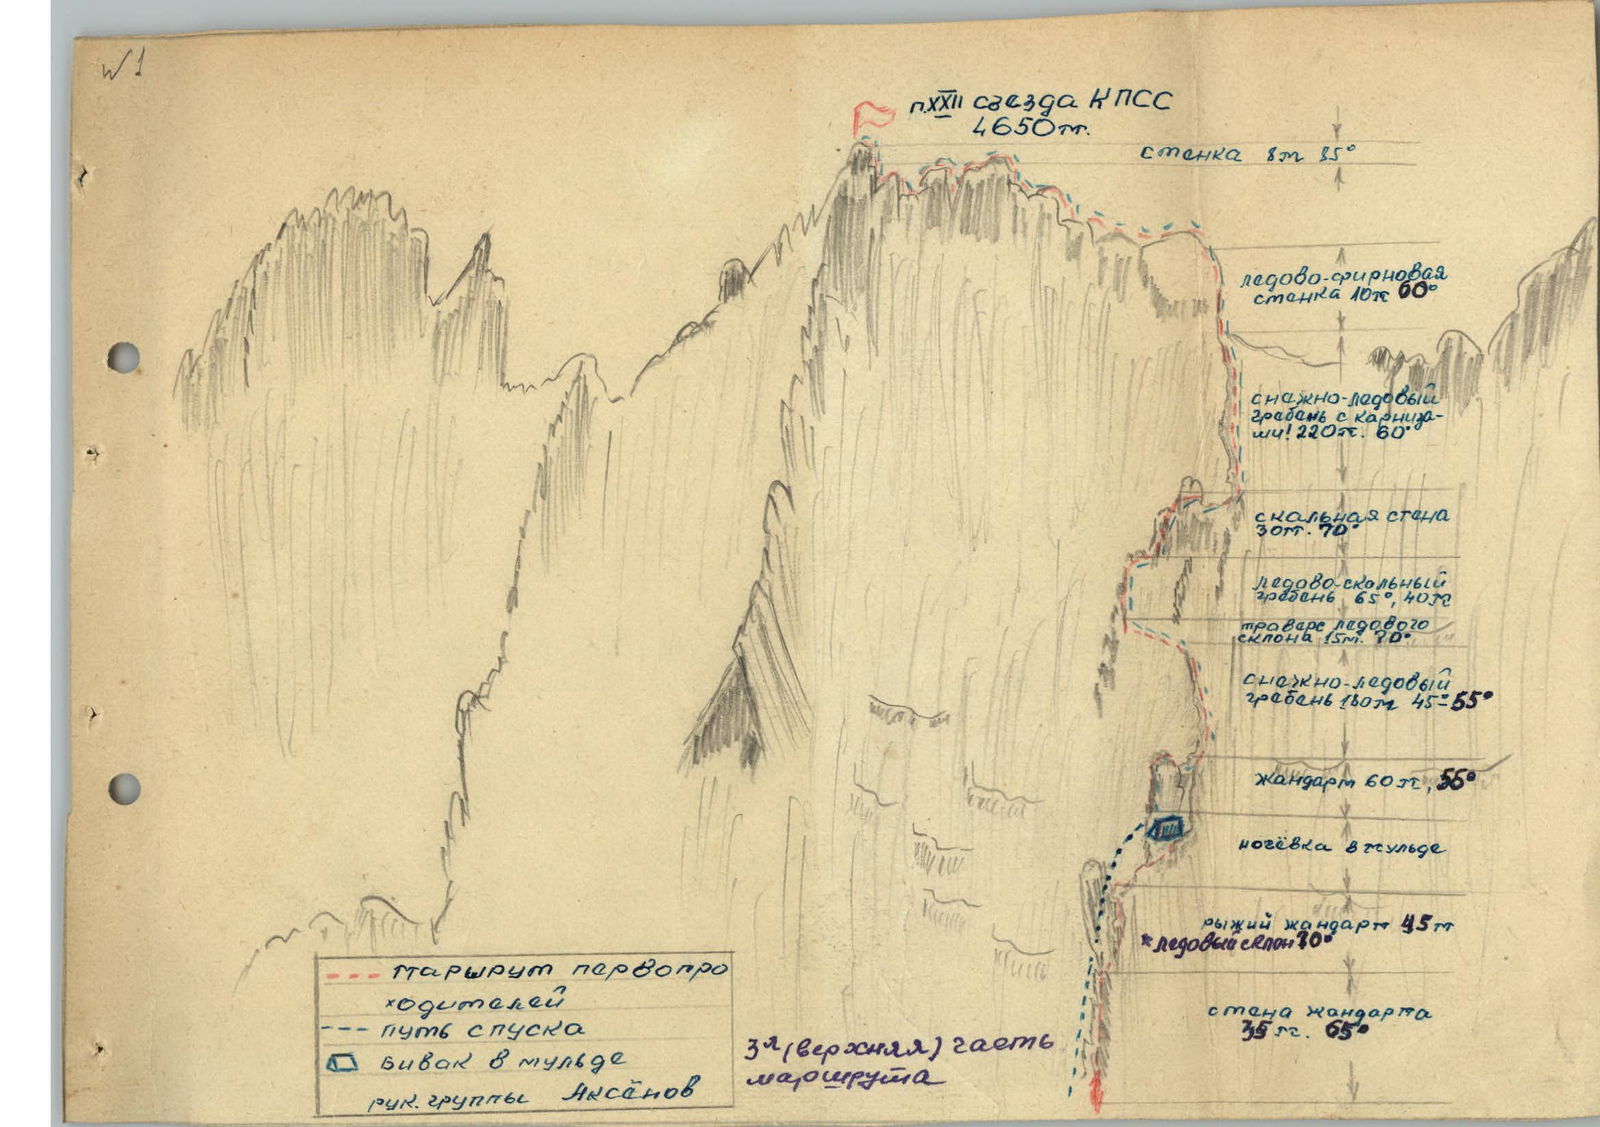 №1
п.XXII съезда КПСС
4650м.
стенка 8м 85°
ледово-фирновая
стенка 10м 60°
снежно-ледовый
гребень с карниза-
ми! 220м. 60°
скальная стена
30м. 70°
ледово-скальный
гребень 65°, 40м
траверс ледового
склона 15м. 70°
снежно-ледовый
гребень 180м 45°-55°
жандарм 60м, 55°
ночёвка в мульде
рыжий жандарм 45м
*ледовый склон 70°
стена жандарма
35м. 65°
маршрут первопро
ходителей
путь спуска
Бивак в мульде
рук. группы Аксёнов
3я (верхняя) часть
маршрута